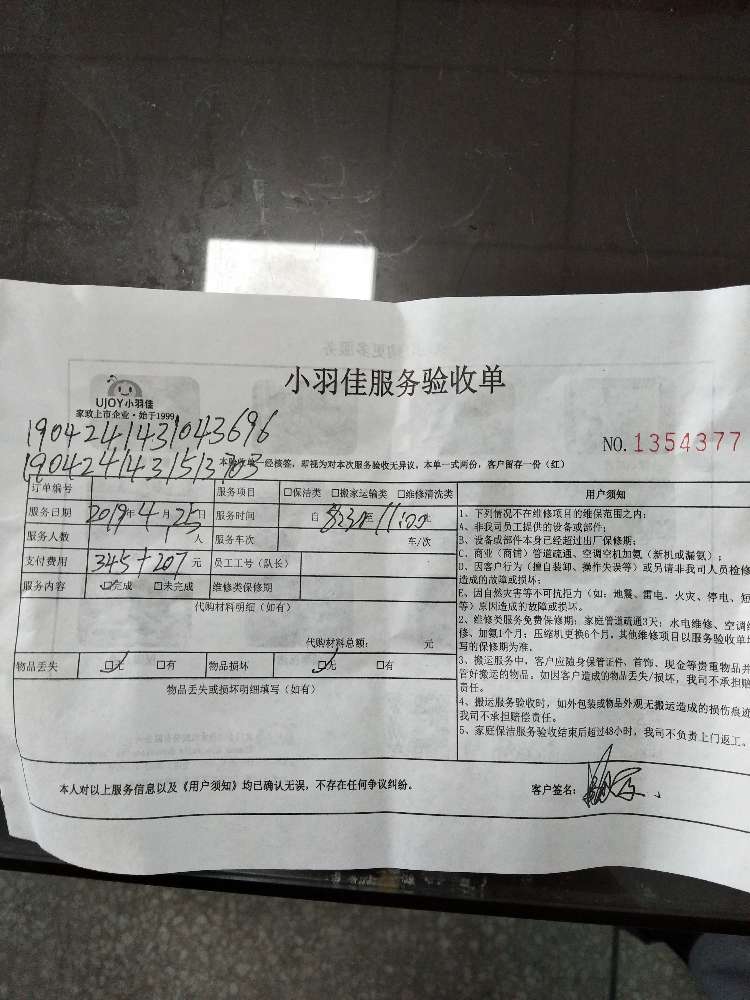 小羽佳服务验收单
UJOY小羽佳
家政上市企业·始于1999
1904241431043696
NO. 1354377
本验收单一经核签,即视为对本次服务验收无异议,本单一式两份,客户留存一份(红)
订单编号 服务项目 □保洁类 □搬家运输类 □维修清洗类
服务日期 2019年4月25日 服务时间 自 8:30至11:00
服务人数 人 服务车次 车/次
支付费用 345+207 元 员工工号(队长)
服务内容 ☑完成 □未完成 维修类保修期
代购材料明细(如有)
代购材料总额: 元
物品丢失 ☑无 □有 物品损坏 ☑无 □有
物品丢失或损坏明细填写(如有)
用户须知
1、下列情况不在维修项目的维保范围之内:
A、非我司员工提供的设备或部件;
B、设备或部件本身已经超过出厂保修期;
C、商业(商铺)管道疏通、空调空机加氨(新机或漏氨);
D、因客户行为(擅自装卸、操作失误等)或另请非我司人员检修
造成的故障或损坏;
E、因自然灾害等不可抗比力(如:地震、雷电、火灾、停电、短
等)原因造成的故障或损坏。
2、维修类服务免费保修期:家庭管道疏通3天;水电维修、空调维
修、加氨1个月;压缩机更换6个月,其他维修项目以服务验收单填
写的保修期为准。
3、搬运服务中,客户应随身保管证件、首饰、现金等贵重物品并
管好搬运的物品,如因客户造成的物品丢失/损坏,我司不承担赔
责任。
4、搬运服务验收时,如外包装或物品外观无搬运造成的损伤痕迹
我司不承担赔偿责任。
5、家庭保洁服务验收结束后超过48小时,我司不负责上门返工。
本人对以上服务信息以及《用户须知》均已确认无误,不存在任何争议纠纷。 客户签名: